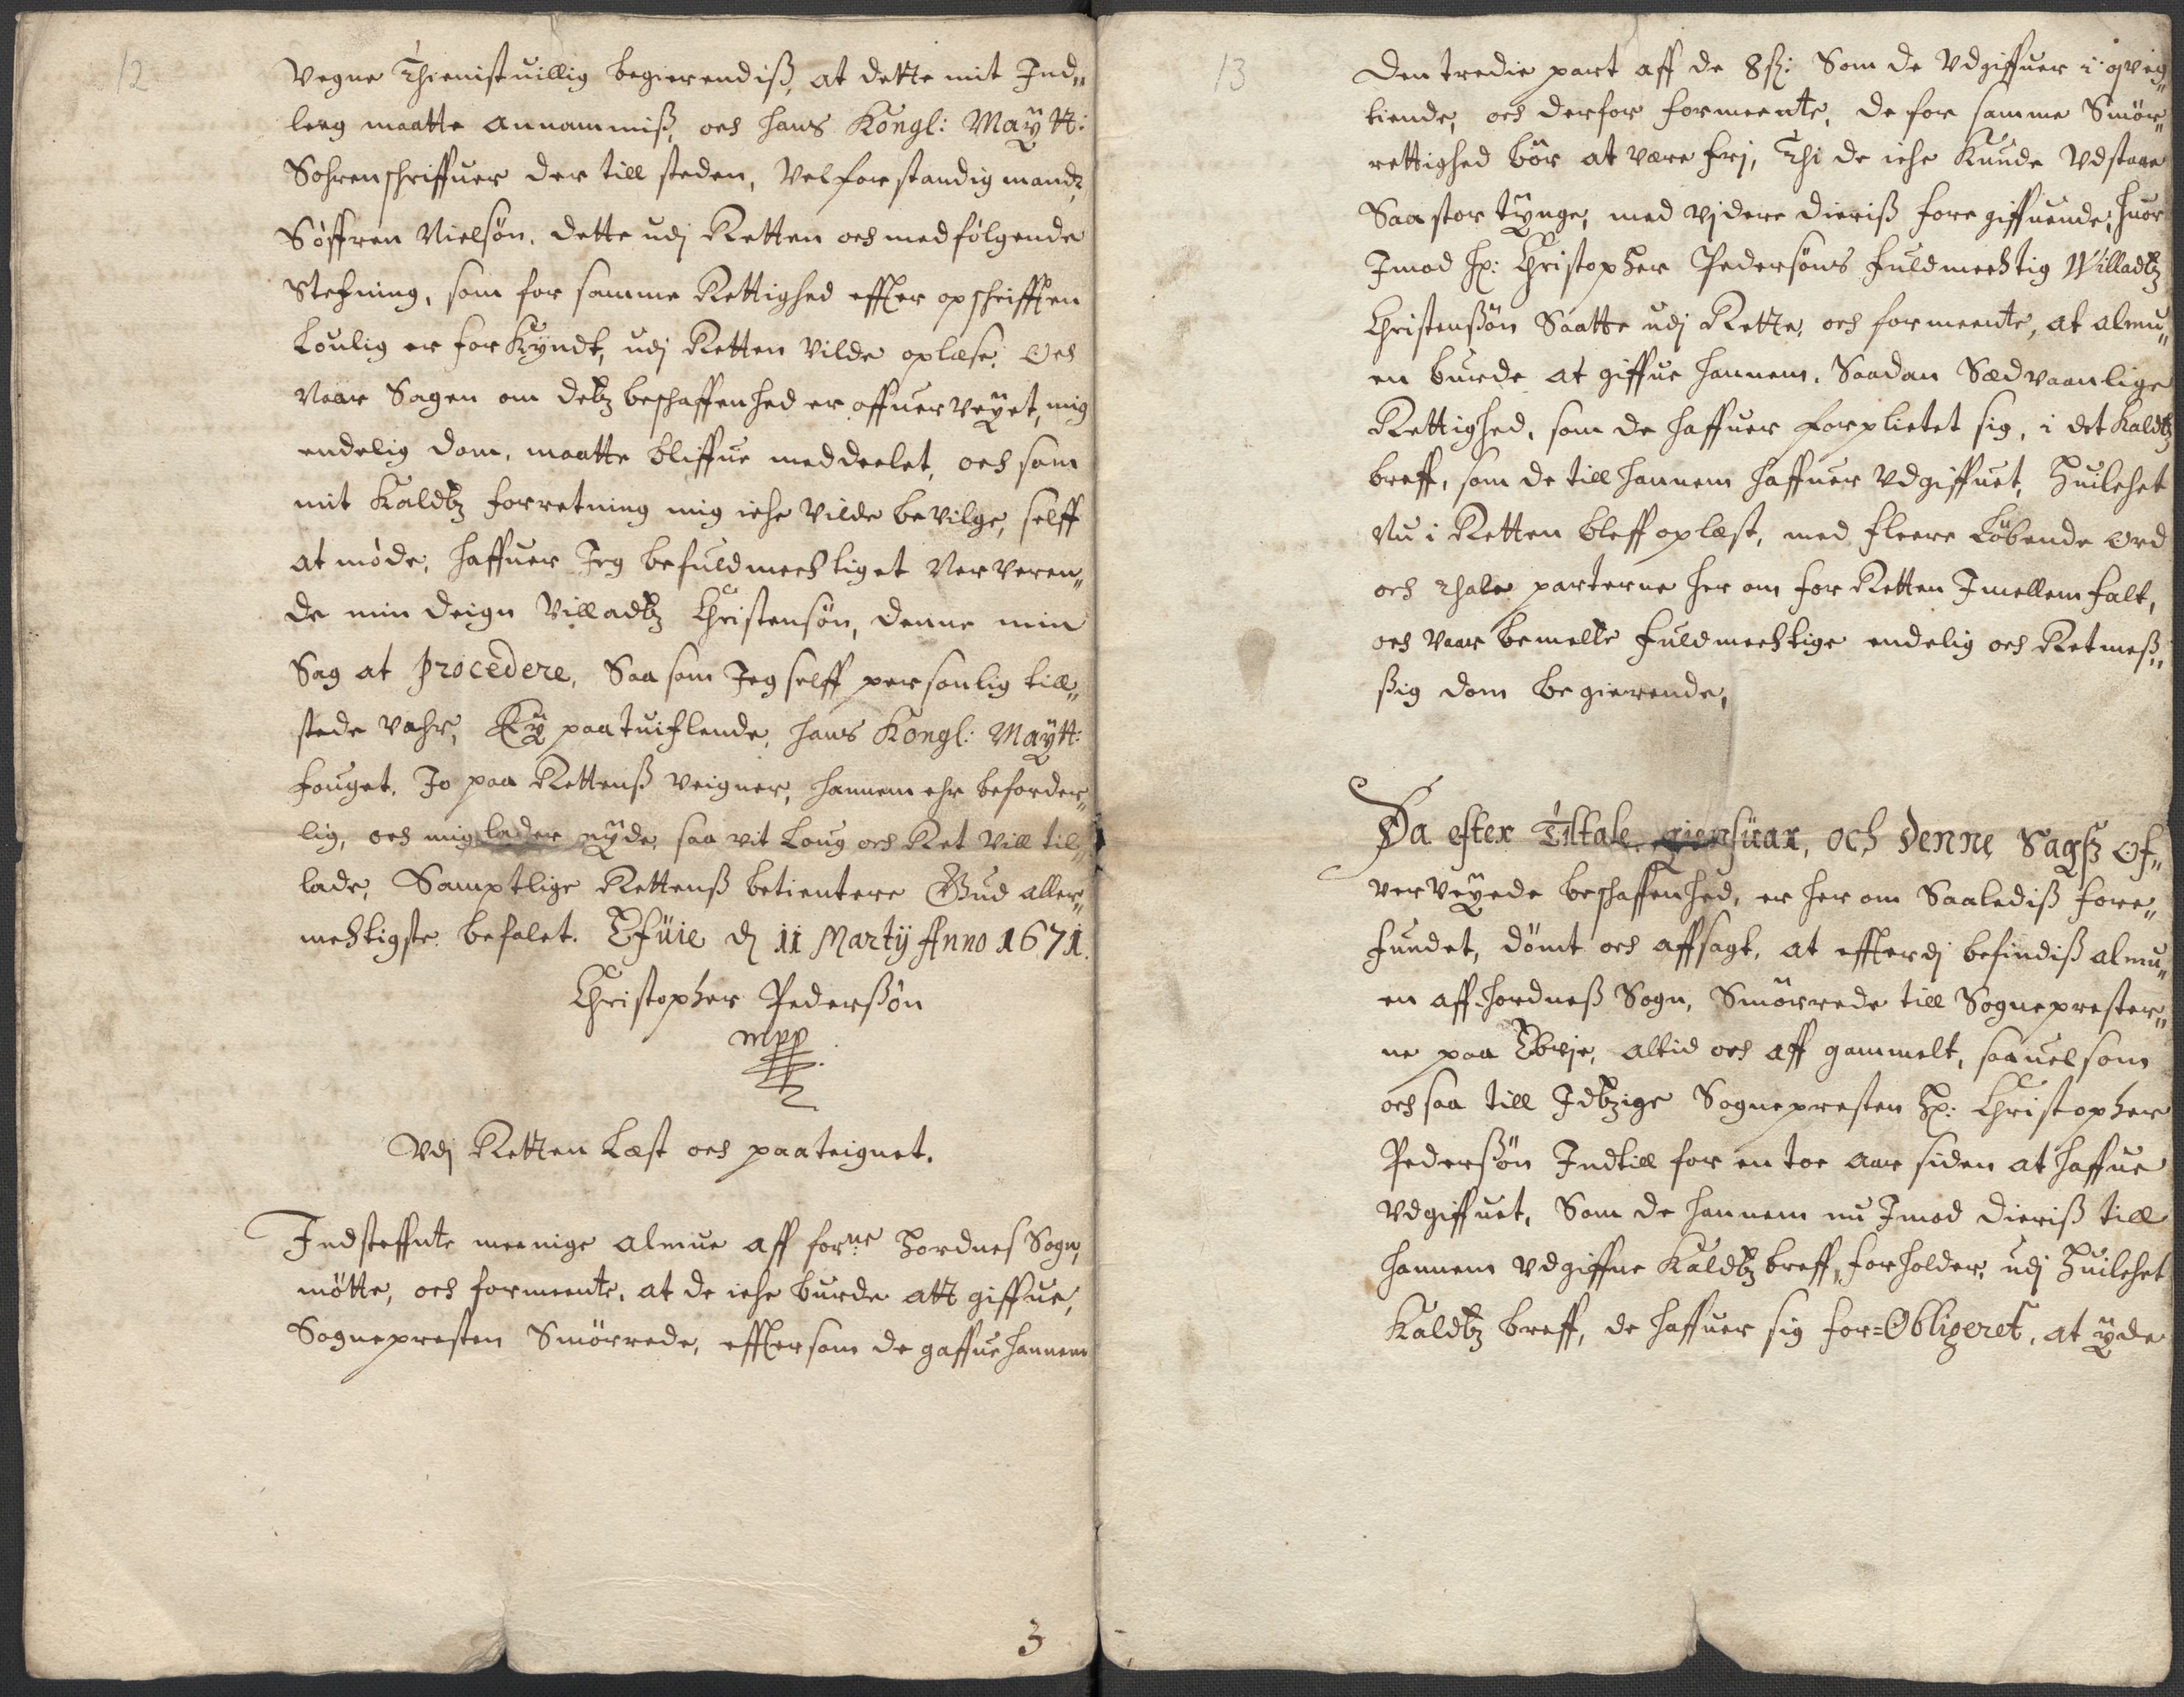 12
Vegne Thienistvillig begierendiß, at dette mit Ind„
leeg maatte annammiß, och hans Kongl: Maÿtt:
Sohrenschriffuer der till steden, Velforstandig mand,
Søffren Nielsøn, dette udj Retten och medfølgende
Stefning, som for samme Rettighed effter opschrifften
Loulig er forKyndt, udj Retten Vilde oplæse, Och
Naar Sagen om detz beschaffenhed er offuerveÿet, mig
endelig dom, maatte bliffue meddeelet, och som
mit Kaldtz forretning mig iche Vilde bevilge, selff
at møde, haffuer Jeg befuldmechtiget Nerveren„
de min deign Villadtz Christensøn, denne min
Sag at procedere, Saa som Jeg selff personlig till„
stede vahr, Eÿ paatuiflende, hans Kongl: Maÿtt:
fouget, Jo paa Rettenß veigner, hannem ehr beforder„
lig, och mig lader nÿde, saa vit Loug och Ret Vill til„
lade, Samptlige Rettenß betientere Gud aller„
mechtigste befalet. Thüie d 11 Martij Anno 1671.
Christopher Pederßøn
mpp
Vdj Retten Læst och paateignet.
Indsteffnte meenige almue aff forne Hordnes Sogn,
møtte, och formeente, at de iche burde att giffue,
Sognepresten Smørrede, efftersom de gaffue hannem
3
13
Den tredie part aff de 8 ß: Som de Vdgiffuer i qveg„
tiende, och derfor formeente, de for samme Smør„
rettighed bør at være frj, Thi de iche Kunde Vdstaae
Saa stor tÿnge, med vjdere dieriß foregiffuende, huor
Jmod Hr: Christopher Pedersøns fuldmechtig Willadtz
Christenßøn Saatte udj Rette, och formeente, at almu„
en burde at giffue hannem, Saadan Sædvaanlige
Rettighed, som de haffuer forplictet sig, i det Kaldtz
breff, som de till hannem haffuer Vdgiffuet, Huilchet
Nu i Retten bleff oplæst, med fleere Løbende Ord
och thale parterne her om for Retten Jmellem falt,
och Vaar bemelte fuldmechtige endelig och Retmeß„
ßig dom begierende,
Da efter Tiltale giensüar, och denne Sagß Of„
verveÿede beschaffenhed, er her om Saalediß fore„
fundet, dømt och affsagt, at effterdj befindiß almu„
en aff Hordneß Sogn, Smørrede till Sogneprester„
ne paa altid och aff gammelt, saauelsom
ochsaa till Jdtzige Sognepresten Hr: Christopher
Pederßøn Indtill for en toe aar siden at haffue
Vdgiffuet, Som de hannem nu Jmod dieriß till
hannem Vdgiffne Kaldtz breff, forholder, udj Huilchet
Kaldtz breff, de haffuer sig for=Obligeret, at ÿde